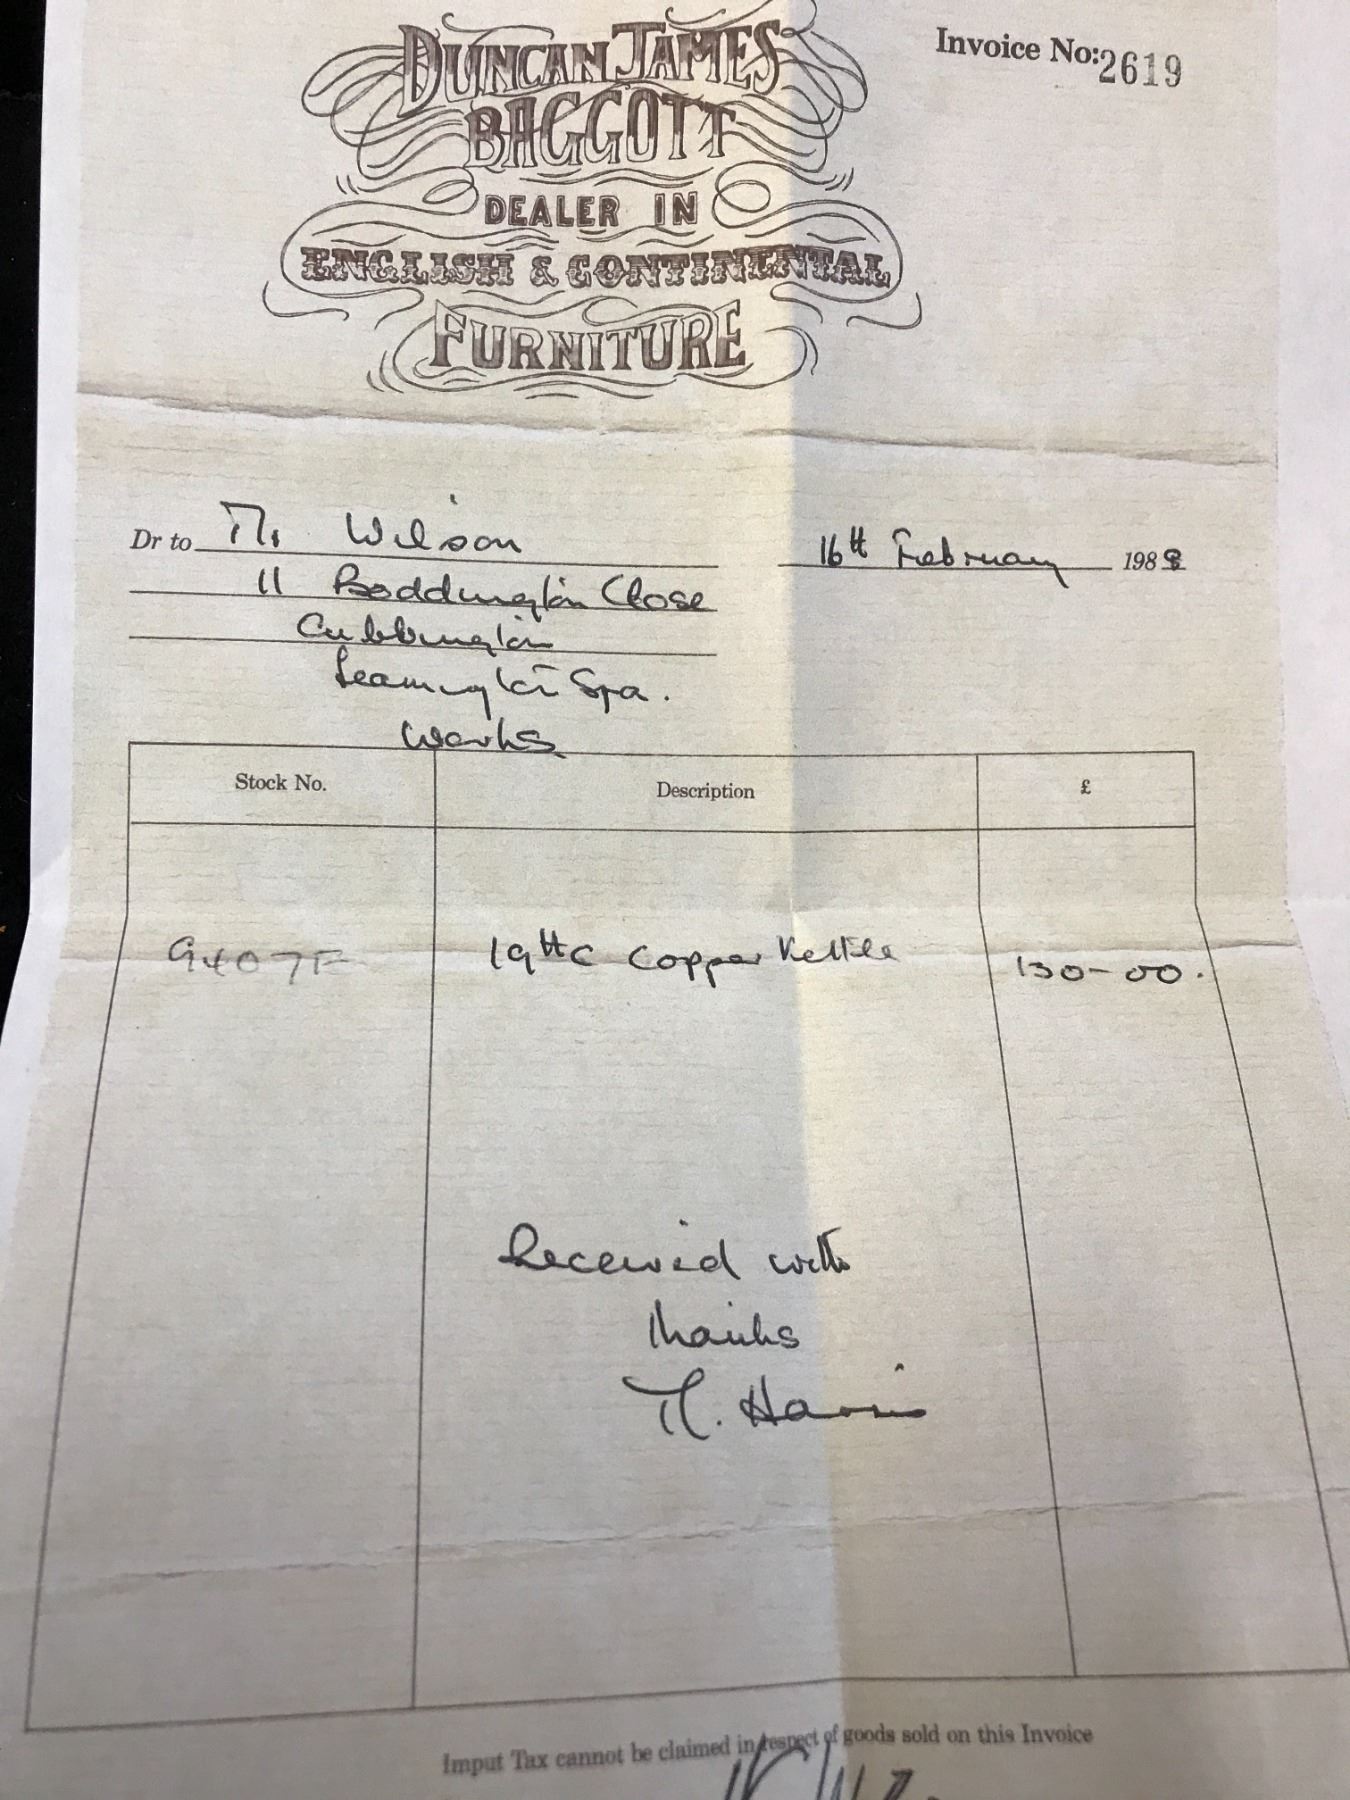 DUNCAN JAMES
BAGGOTT
DEALER IN
ENGLISH & CONTINENTAL
FURNITURE
Invoice No: 2619
Dr to Mr Wilson
16th February 1988
11 Boddington Close
Cubbington
Leamington Spa.
Warks
Stock No. Description £
9407F 19thC Copper Kettle 130-00.
Received with
thanks
M. Harris
Imput Tax cannot be claimed in respect of goods sold on this Invoice